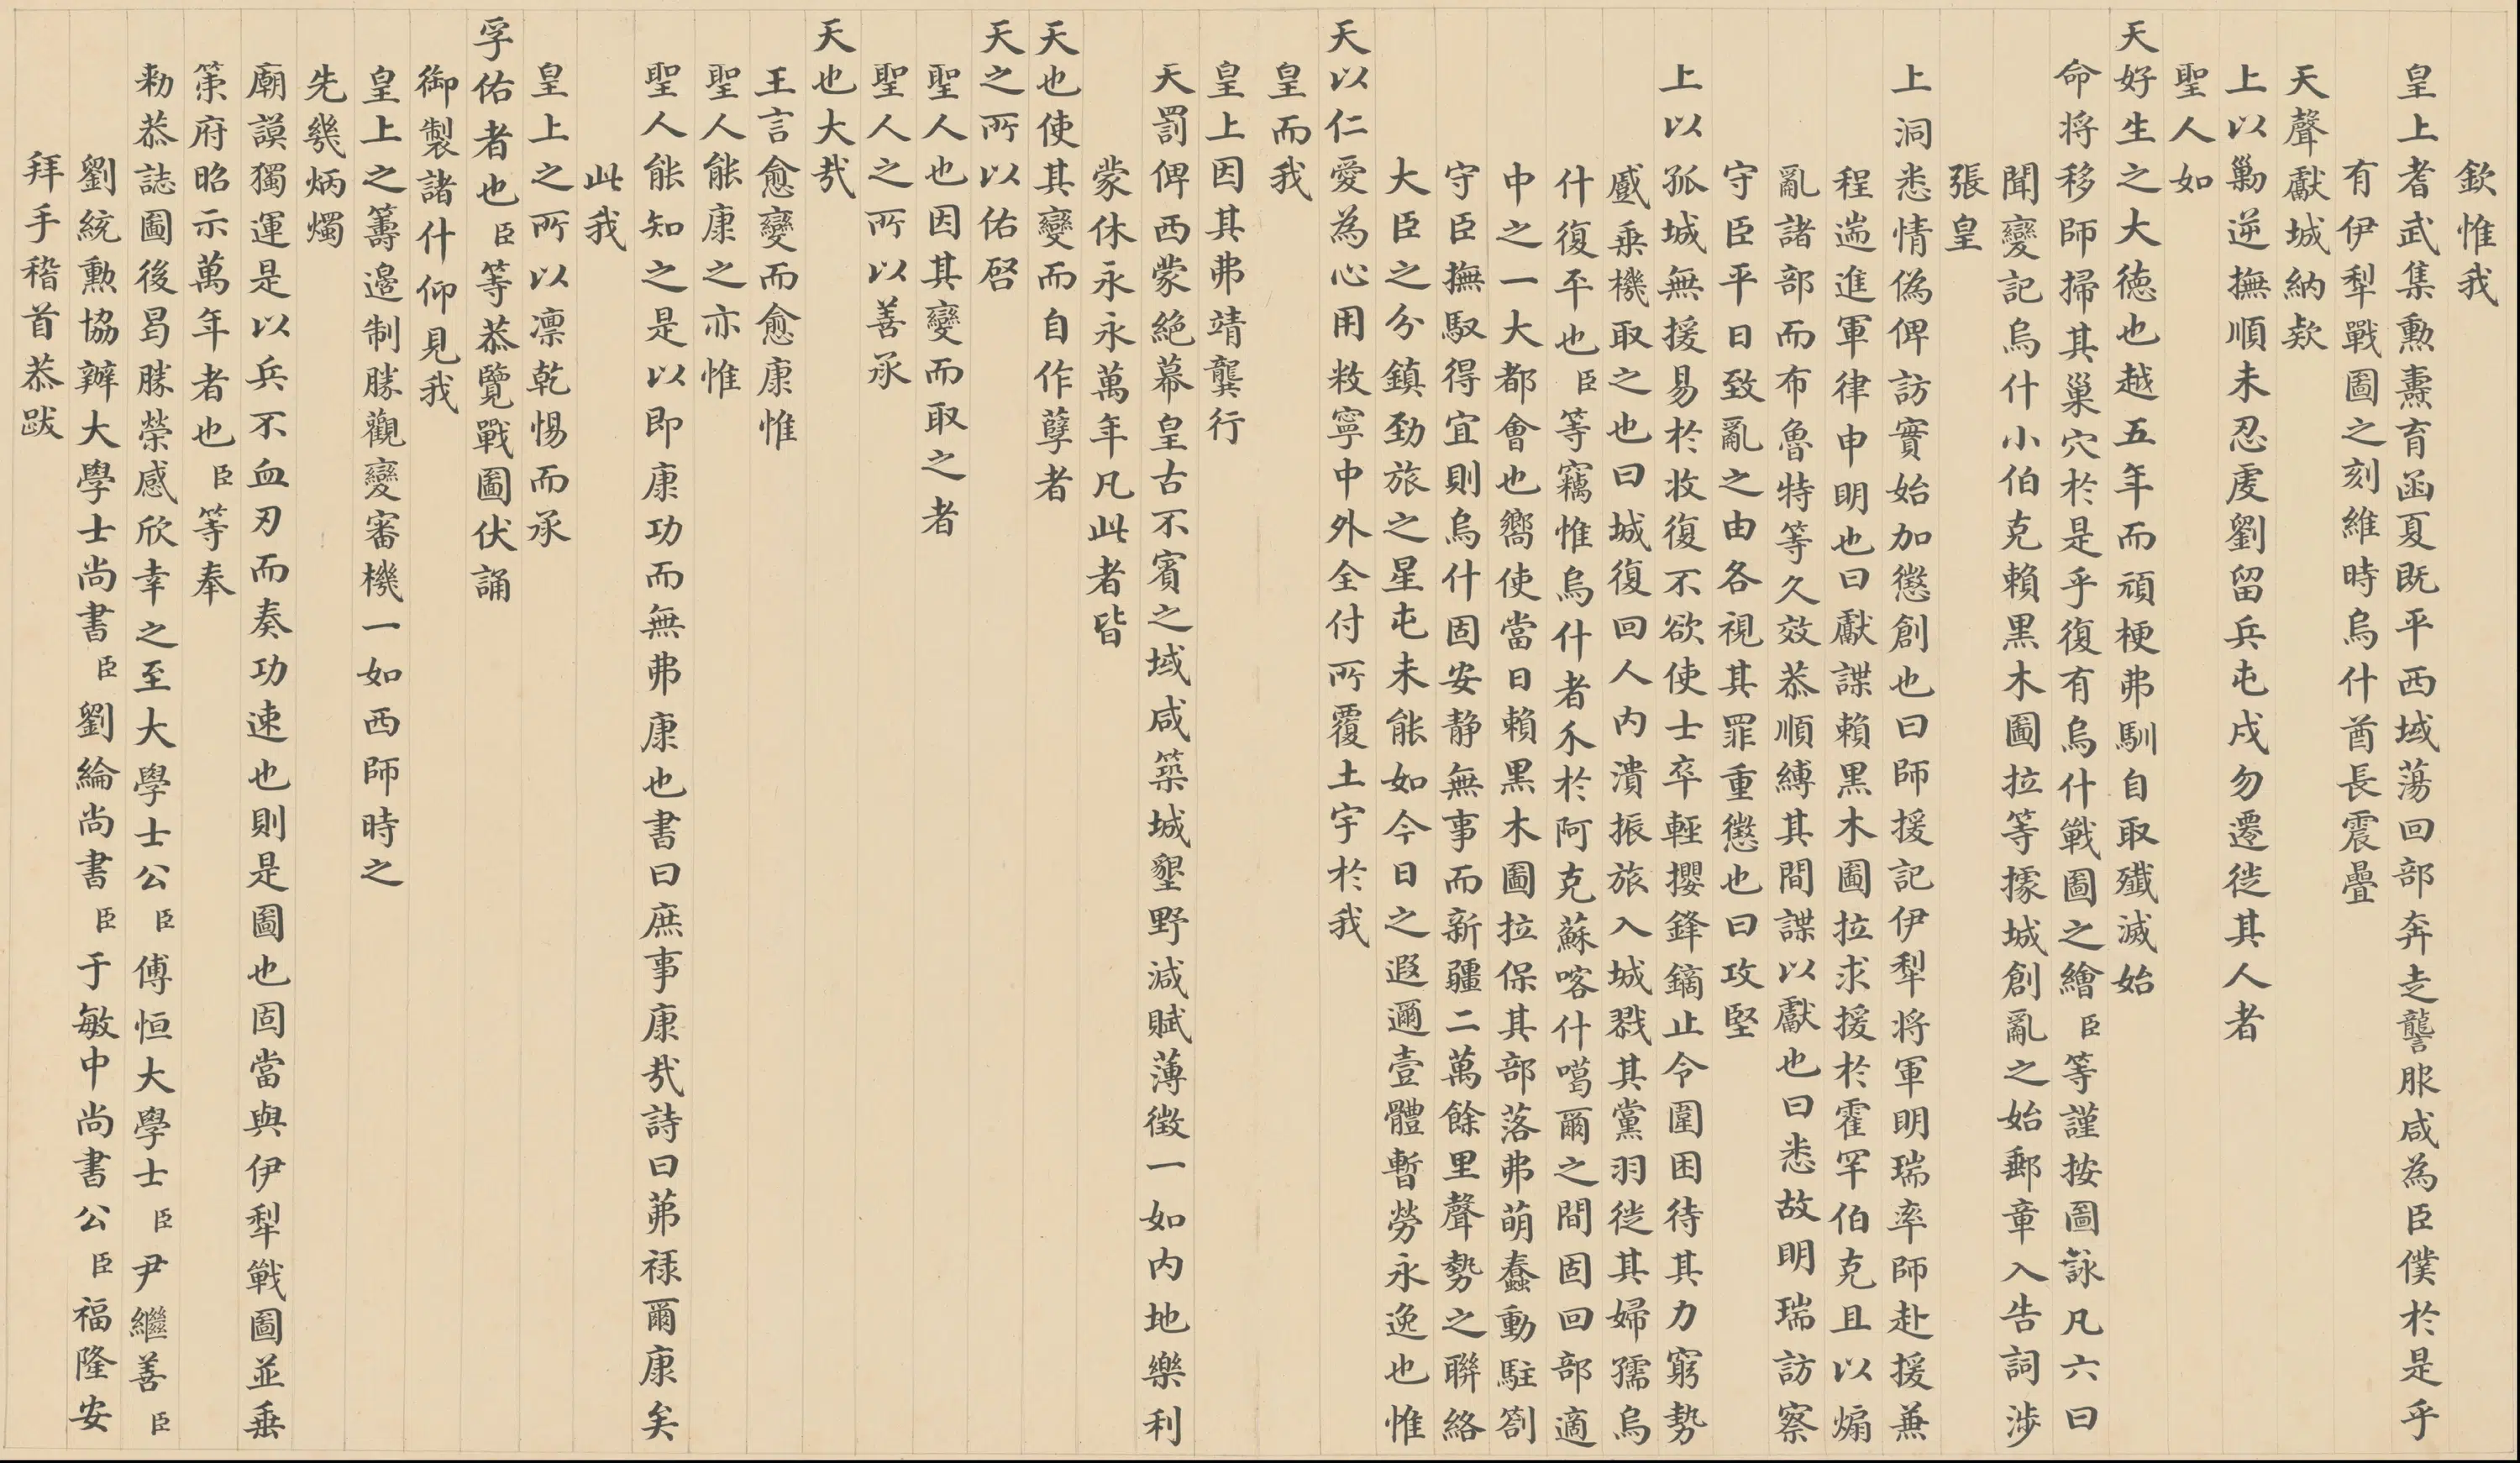 欽惟我
皇上耆武集勲燾育函夏既平西域蕩回部奔走讋服咸為臣僕於是乎
有伊犁戰圖之刻維時烏什酋長震疊
天聲獻城納欵
上以勦逆撫順未忍虔劉留兵屯戍勿遷徙其人者
聖人如
天好生之大徳也越五年而頑梗弗馴自取殲滅始
命将移師掃其巢穴於是乎復有烏什戰圖之繪臣等謹按圖詠凡六曰
聞變記烏什小伯克賴黒木圖拉等據城創亂之始郵章入告詞涉
張皇
上洞悉情偽俾訪實始加懲創也曰師援記伊犁将軍明瑞率師赴援兼
程遄進軍律申明也曰獻諜賴黒木圖拉求援於霍罕伯克且以煽
亂諸部而布魯特等久效恭順縛其間諜以獻也曰悉故明瑞訪察
守臣平日致亂之由各視其罪重懲也曰攻堅
上以孤城無援易於收復不欲使士卒輕攖鋒鏑止令圍困待其力窮勢
蹙乗機取之也曰城復回人內潰振旅入城戮其黨羽徙其婦孺烏
什復平也臣等竊惟烏什者介於阿克蘇喀什噶爾之間固回部適
中之一大都會也嚮使當日賴黒木圖拉保其部落弗萌蠢動駐劄
守臣撫馭得宜則烏什固安静無事而新疆二萬餘里聲勢之聯絡
大臣之分鎮勁旅之星屯未能如今日之遐邇壹體暫勞永逸也惟
天以仁愛為心用敉寧中外全付所覆土宇於我
皇而我
皇上因其弗靖龔行
天罰俾西蒙絶幕皇古不賓之域咸築城墾野減賦薄徴一如内地樂利
蒙休永永萬年凡此者皆
天也使其變而自作孽者
天之所以佑啓
聖人也因其變而取之者
聖人之所以善承
天也大哉
王言愈變而愈康惟
聖人能康之亦惟
聖人能知之是以即康功而無弗康也書曰庶事康哉詩曰茀祿爾康矣
此我
皇上之所以凛乾惕而承
孚佑者也臣等恭覽戰圖伏誦
御製諸什仰見我
皇上之籌邉制勝觀變審機一如西師時之
先幾炳燭
廟謨獨運是以兵不血刃而奏功速也則是圖也固當與伊犁戰圖並垂
策府昭示萬年者也臣等奉
勑恭誌圖後曷勝榮感欣幸之至大學士公臣傅恒大學士臣尹繼善臣
劉統勲協辦大學士尚書臣劉綸尚書臣于敏中尚書公臣福隆安
拜手稽首恭跋